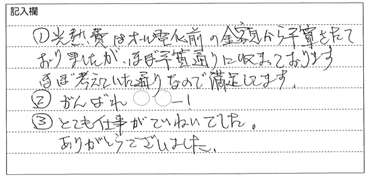 記入欄
①光熱費はオール電化前の金額から予算をたて
おりましたが、ほぼ予算通りに収まっております
ほぼ考えていた通りなので満足してます。
②がんばれ○○ー!
③とても仕事がていねいでした。
ありがとうございました。